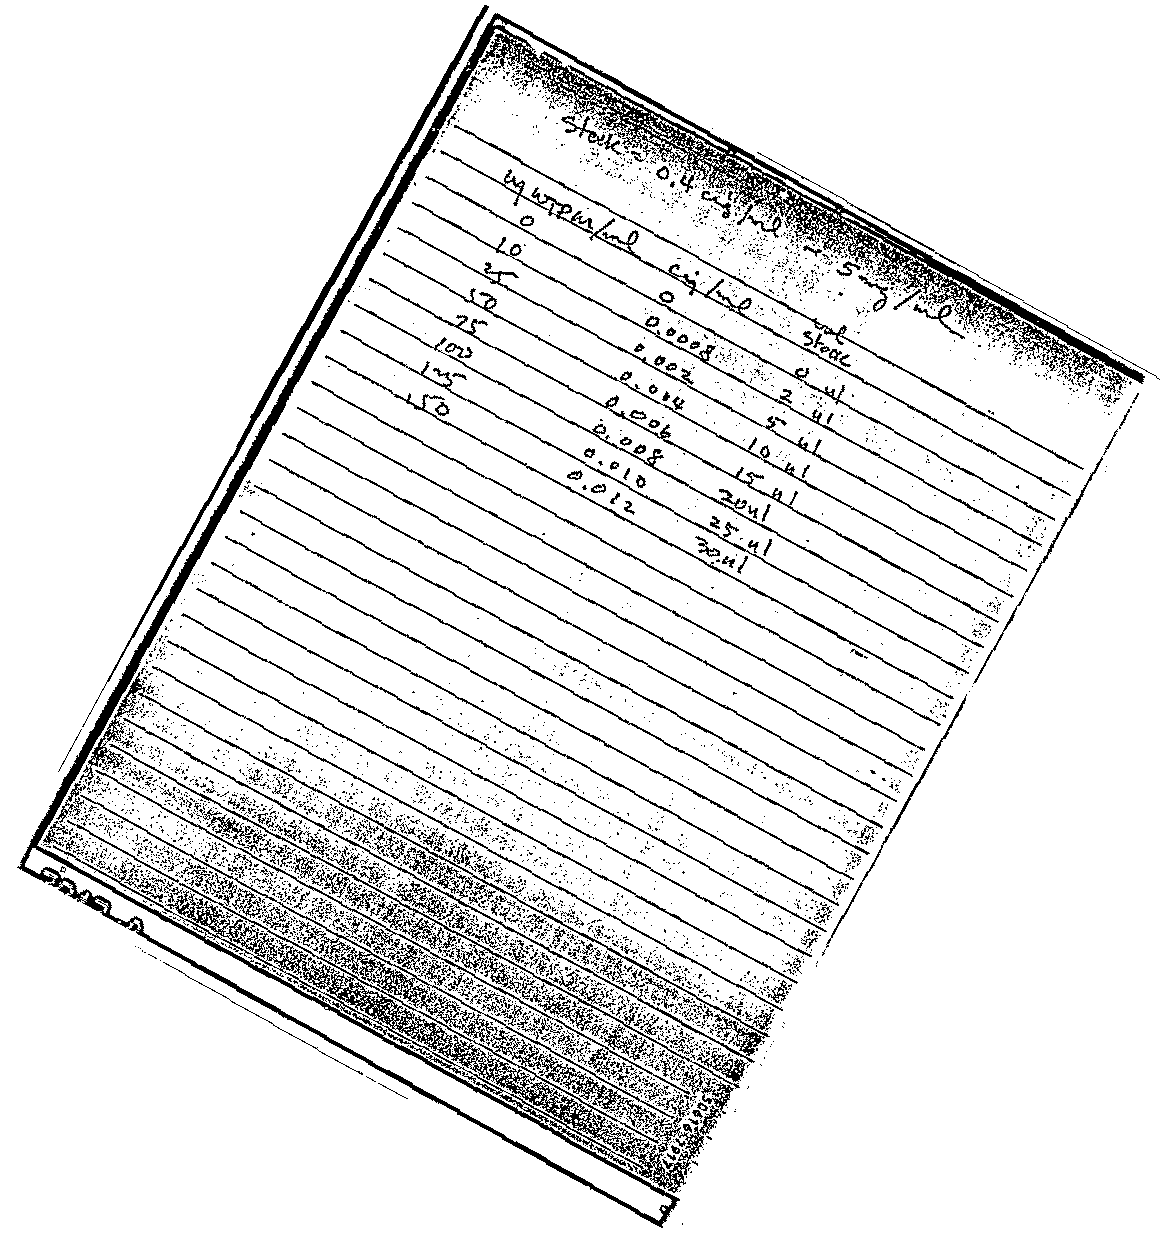 Stock = 0.4 cig/ml ~ 5mg/ml
ug WTPM/ml cig/ml vol stock
0 0 0 ul
10 0.0008 2 ul
25 0.002 5 ul
50 0.004 10 ul
75 0.006 15 ul
100 0.008 20 ul
125 0.010 25 ul
150 0.012 30 ul